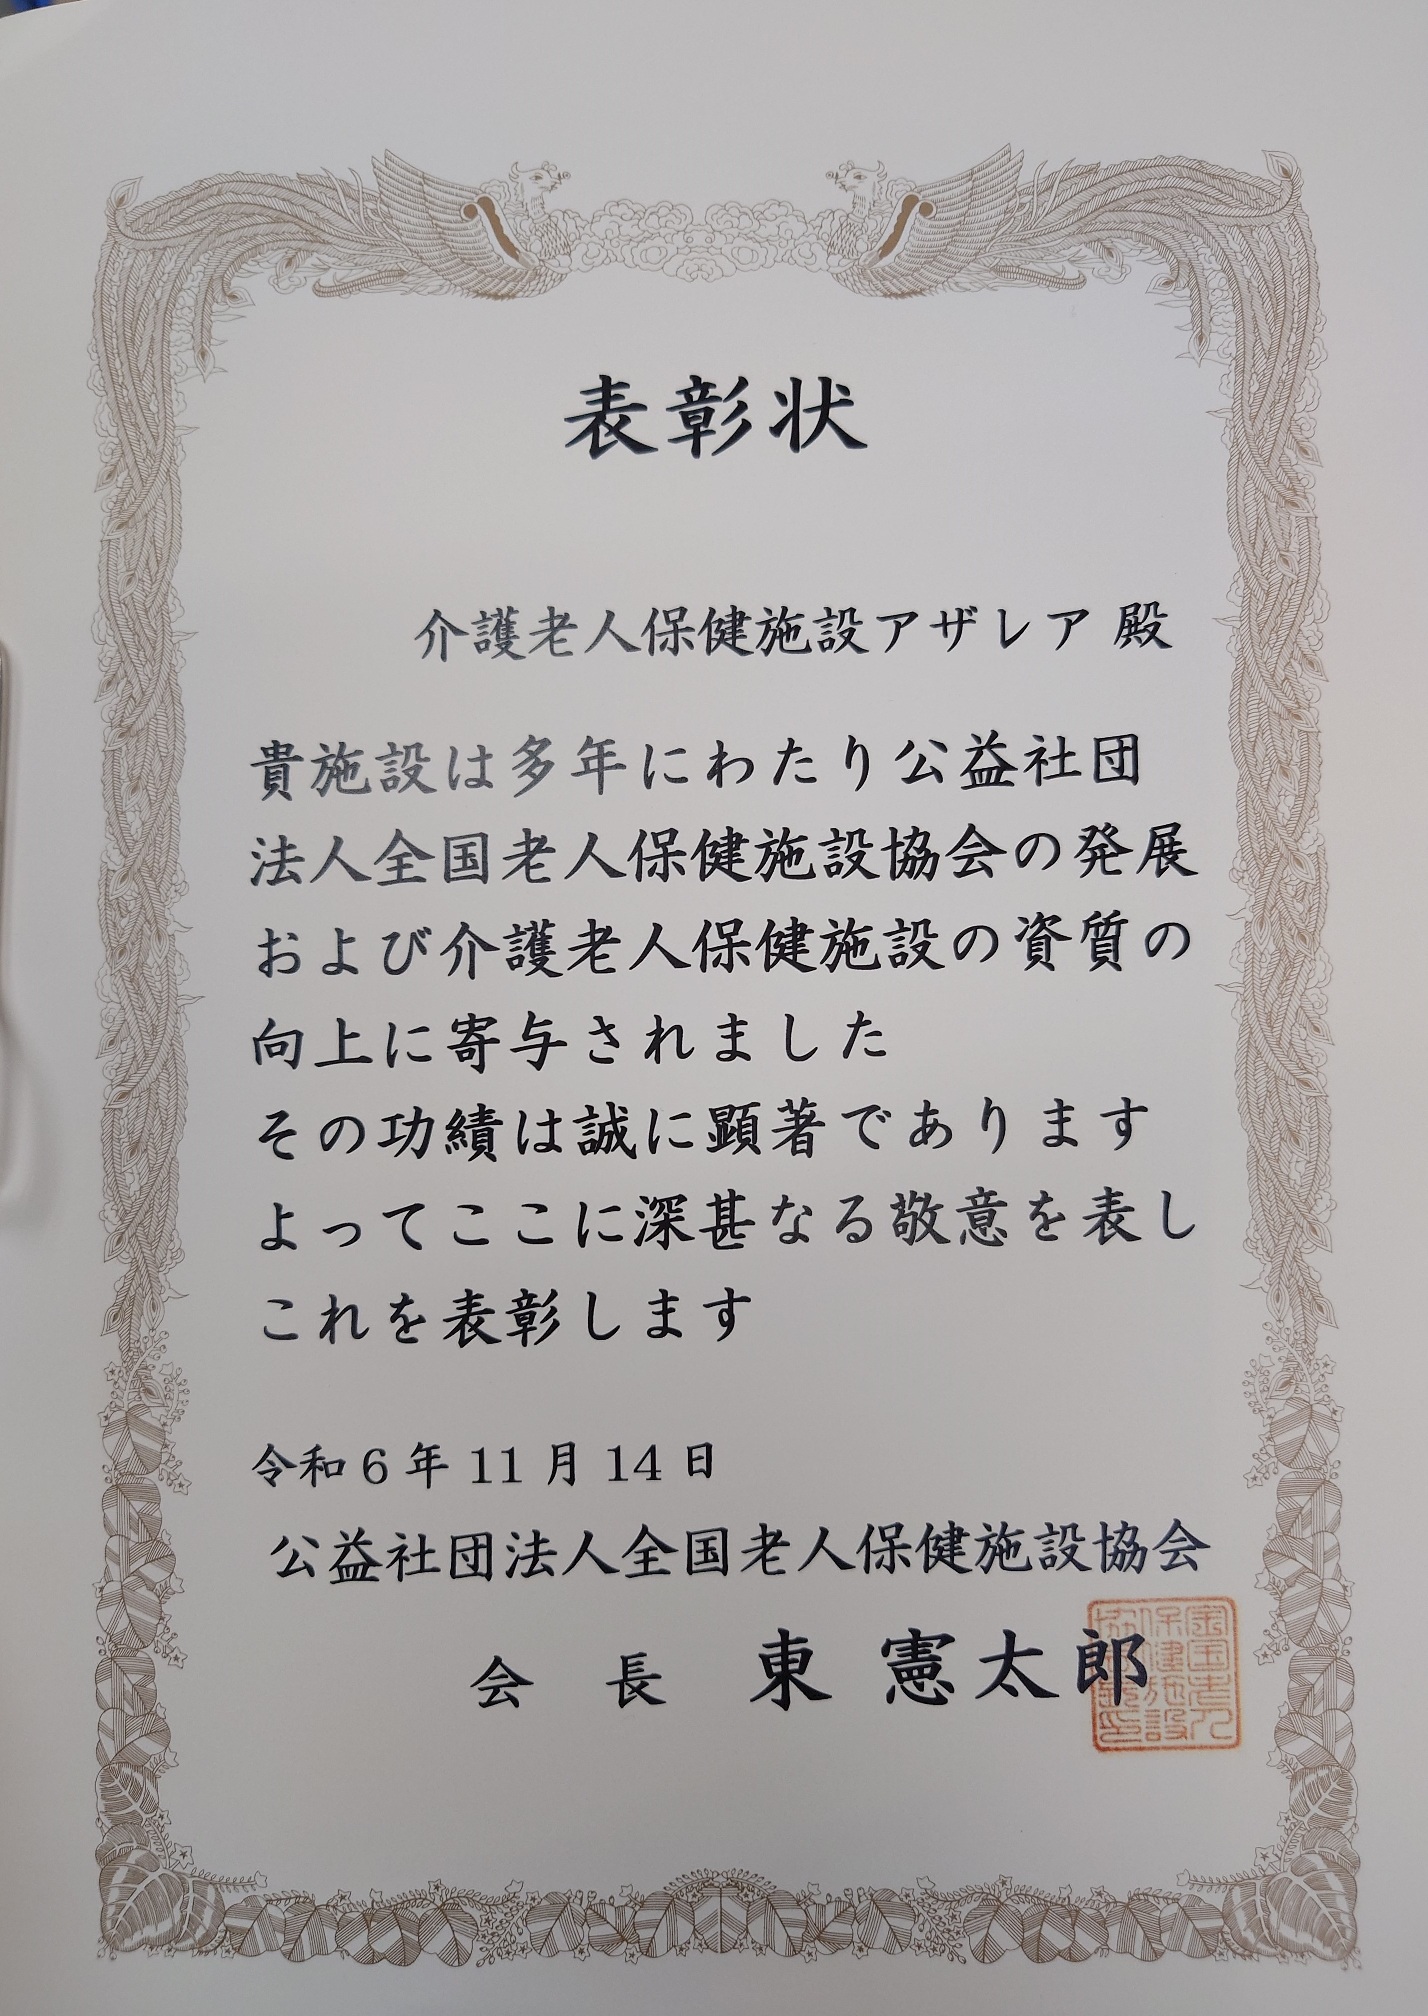 表彰状
介護老人保健施設アザレア 殿
貴施設は多年にわたり公益社団
法人全国老人保健施設協会の発展
および介護老人保健施設の資質の
向上に寄与されました
その功績は誠に顕著であります
よってここに深甚なる敬意を表し
これを表彰します
令和6年11月14日
公益社団法人全国老人保健施設協会
会 長 東 憲太郎
全国老人
保健施設
協会